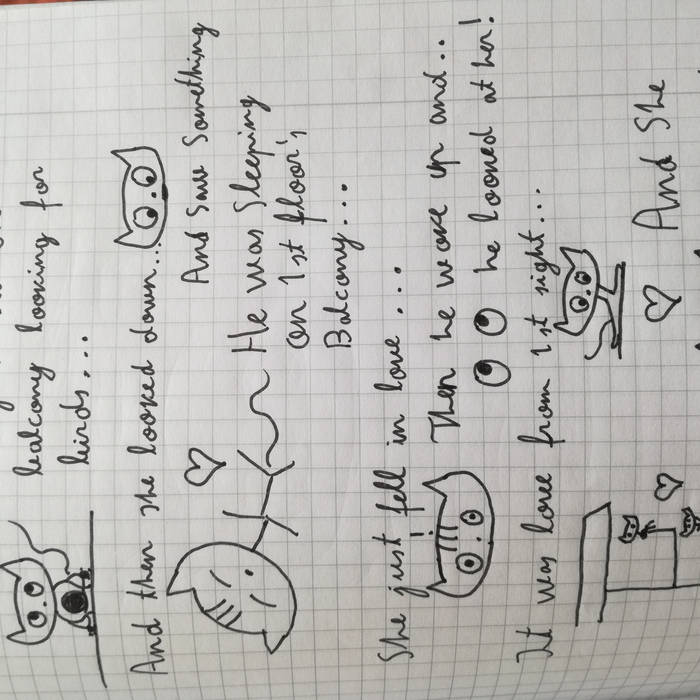 balcony looking for
birds...
And then she looked down...
And Saw Something
He was sleeping
on 1st floor's
Balcony...
She just fell in love...
Then he woke up and..
he looked at her!
It was love from 1st sight...
And She